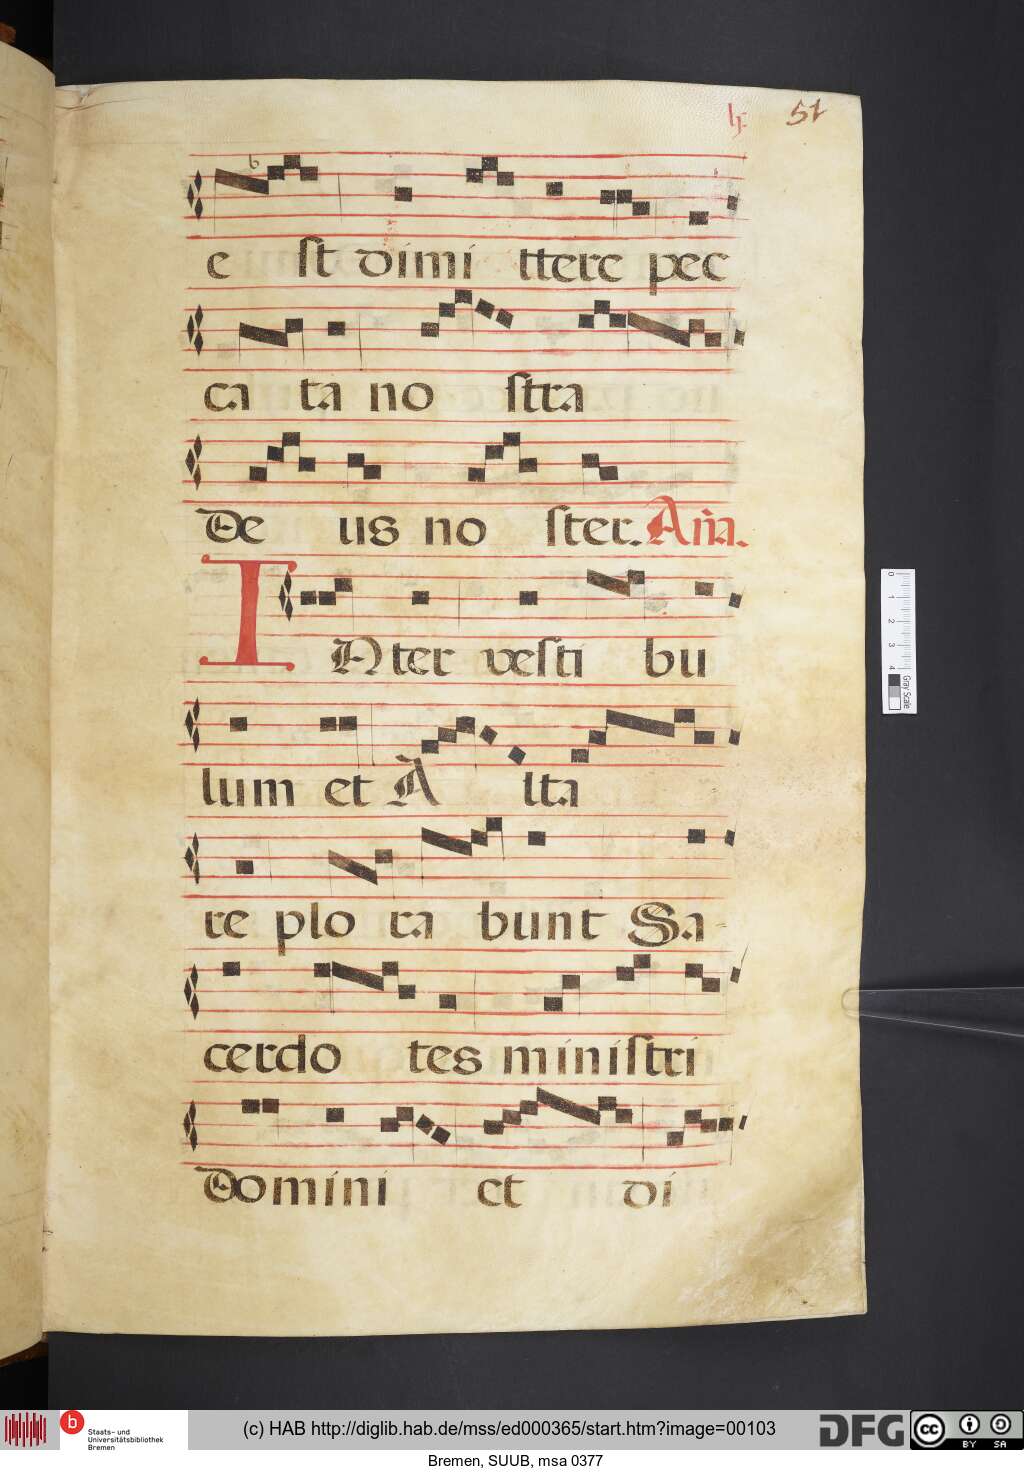 h: 51
b
e st dimi ttere pec
ca ta no stra
De us no ster. Aña.
INter vesti bu
lum et Alta
re plo ra bunt Sa-
cerdo tes ministri
Domini et di
0 1 2 3 4
Gray Scale
b
Staats- und
Universitätsbibliothek
Bremen
(c) HAB http://diglib.hab.de/mss/ed000365/start.htm?image=00103
DFG
cc BY SA
Bremen, SUUB, msa 0377